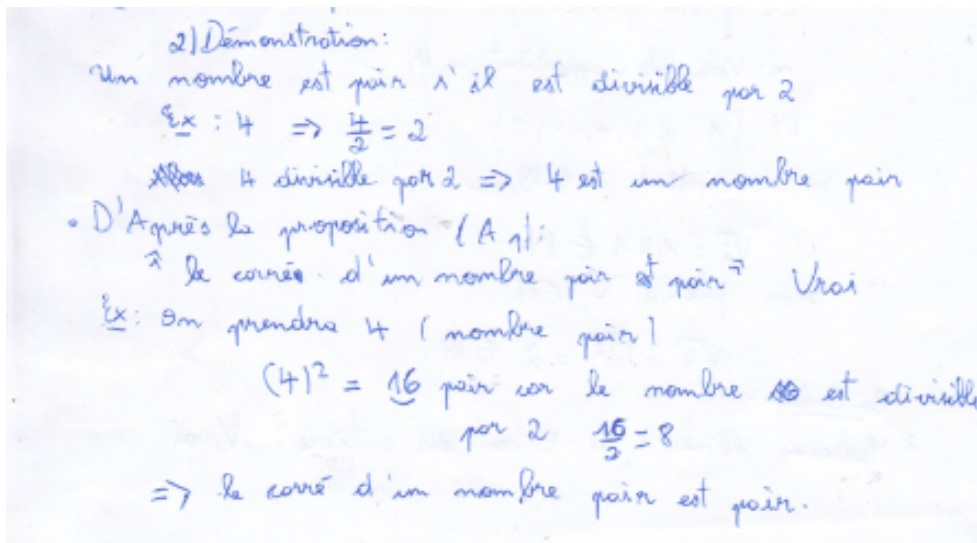 2) Démonstration:
Un nombre est pair s'il est divisible par 2
Ex : 4 => 4/2 = 2
4 divisible par 2 => 4 est un nombre pair
• D'Après la proposition (A1):
" le carrée d'un nombre pair est pair " Vrai
Ex: On prendra 4 ( nombre pair )
(4)² = 16 pair car le nombre est divisible
par 2 16/2 = 8
=> le carré d'un nombre pair est pair.